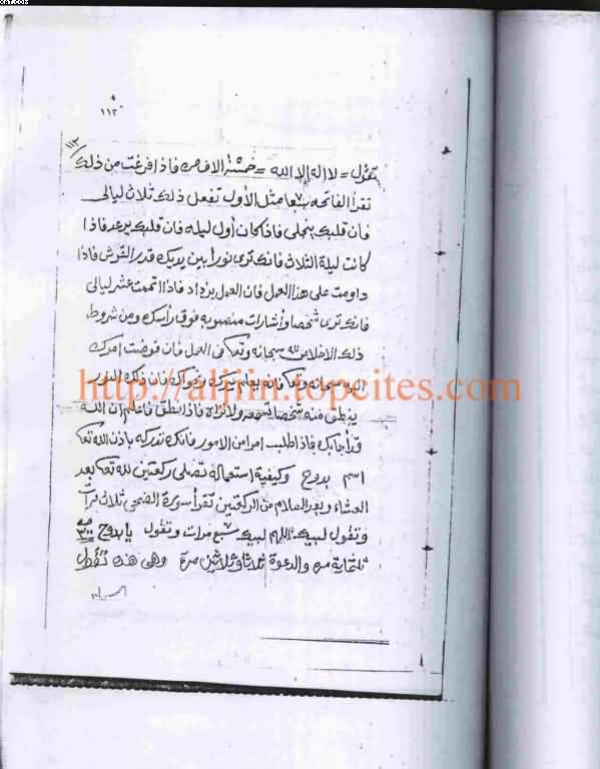 ١١٢
١١٣
تقول = لا اله إلا الله = خمسة الاف مره فاذا فرغت من ذلك
تقرأ الفاتحه سبعا مثل الأول تفعل ذلك ثلاث ليالى
فان قلبك ينجلى فاذا كان أول ليله فان قلبك يرعد فاذا
كانت ليلة الثلاث فانك ترى نورا بين يديك قدر القرش فاذا
داومت على هذا العمل فان العمل يزداد فاذا اتممت عشر ليالى
فانك ترى شخصا وأشارات منصوبه فوق رأسك ومن شروط
ذلك الاخلاص لله سبحانه وتعالى فى العمل فان فوضت امرك
اليه سبحانه وتعالى فانه يعلم سرك ونجواك فان ذلك النور
http://aljiin.topcites.com
ينطق منه شخصا تسمعه ولا تراه فاذا نطق فاعلم ان الله
قد أجابك فاذا طلبت امرا من الامور فانك تدركه باذن الله تعالى
اسم بدوح وكيفية استعماله تصلى ركعتين لله تعالى بعد
العشاء وبعد السلام من الركعتين تقرأ سورة الضحى ثلاث مرات
وتقول لبيك اللهم لبيك سبع مرات وتقول يا بدوح ٣٠٠
ثلثماية مره والدعوة ثلاثا وثلاثين مرة وهى هذه تقول